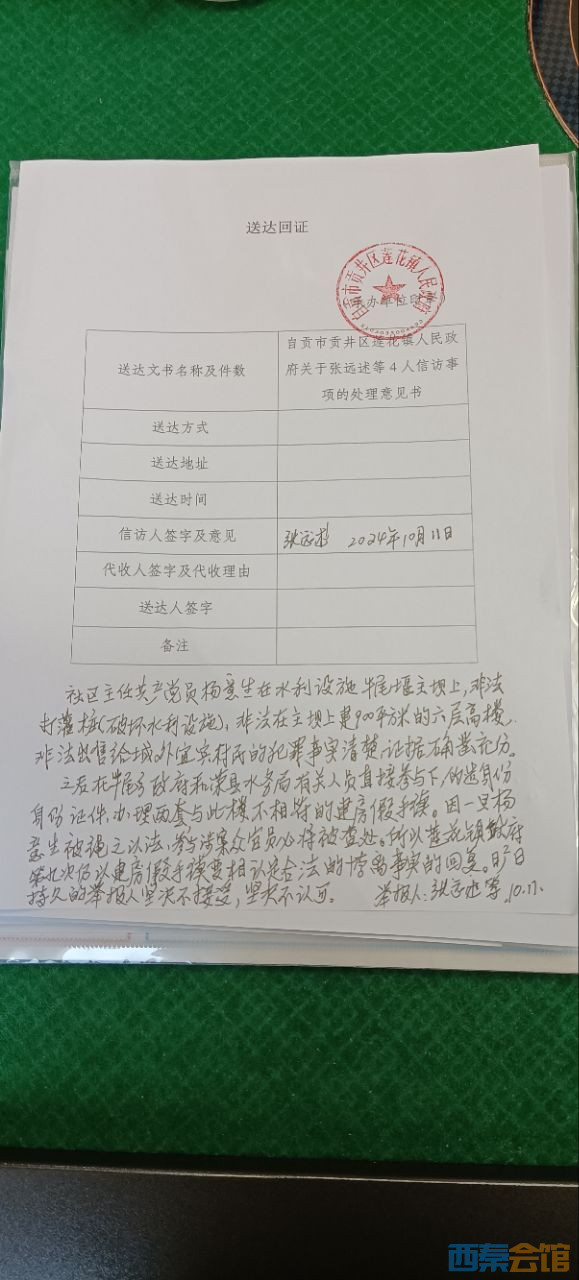 送达回证
自贡市贡井区莲花镇人民政府
承办单位印章）
送达文书名称及件数
自贡市贡井区莲花镇人民政
府关于张远述等4人信访事
项的处理意见书
送达方式
送达地址
送达时间
信访人签字及意见
张远述 2024年10月11日
代收人签字及代收理由
送达人签字
备注
社区主任共产党员杨意生在水利设施牛尾堰主坝上,非法
打灌桩(破坏水利设施),非法在主坝上建900平米的六层高楼.
非法出售给域外宜宾村民的犯罪事实清楚,证据确凿充分。
之后在牛尾乡政府和荣县水务局有关人员直接参与下,伪造身份
身份证件,办理两套与此楼不相符的建房假手续。因一旦杨
意生被绳之以法,参与涉案众官员必将被查处。所以莲花镇政府
第九次仍以建房假手续变相认定合法的背离事实的回复。旷日
持久的举报人坚决不接受,坚决不认可。 举报人:张远述等.10.11.
西秦会馆